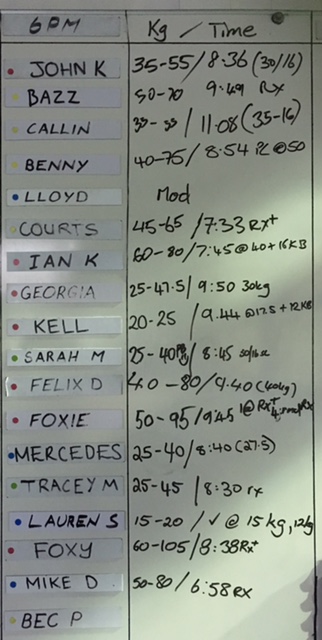 6PM Kg / Time
JOHN K 35-55/8:36 (30/16)
BAZZ 50-70 9:49 Rx
CALLIN 35-55/11.08 (35-16)
BENNY 40-75/8:54 @50
LLOYD Mod
COURTS 45-65/7:33 RX+
IAN K 60-80/7:45 @40+16KB
GEORGIA 25-47.5/9:50 30kg
KELL 20-25/9.44 @17.5+12KB
SARAH M 25-40 / 8:45
FELIX D 40-80/9.40 (40kg)
FOXIE 50-95/9:45 Rx+
MERCEDES 25-40/8:40 (27.5)
TRACEY M 25-45/8:30 rx
LAUREN S 15-20/✓ @ 15kg, 12kg
FOXY 60-105/8:38RX+
MIKE D 50-80/6:58 RX
BEC P